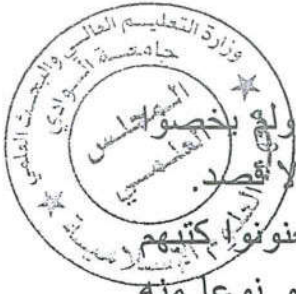 وزارة التعليم العالي والبحث العلمي
جامعة الوادي
المجلس
العلمي
ولم يخصوا
لا قصد.
عنونوا كتبهم
نوعا منه